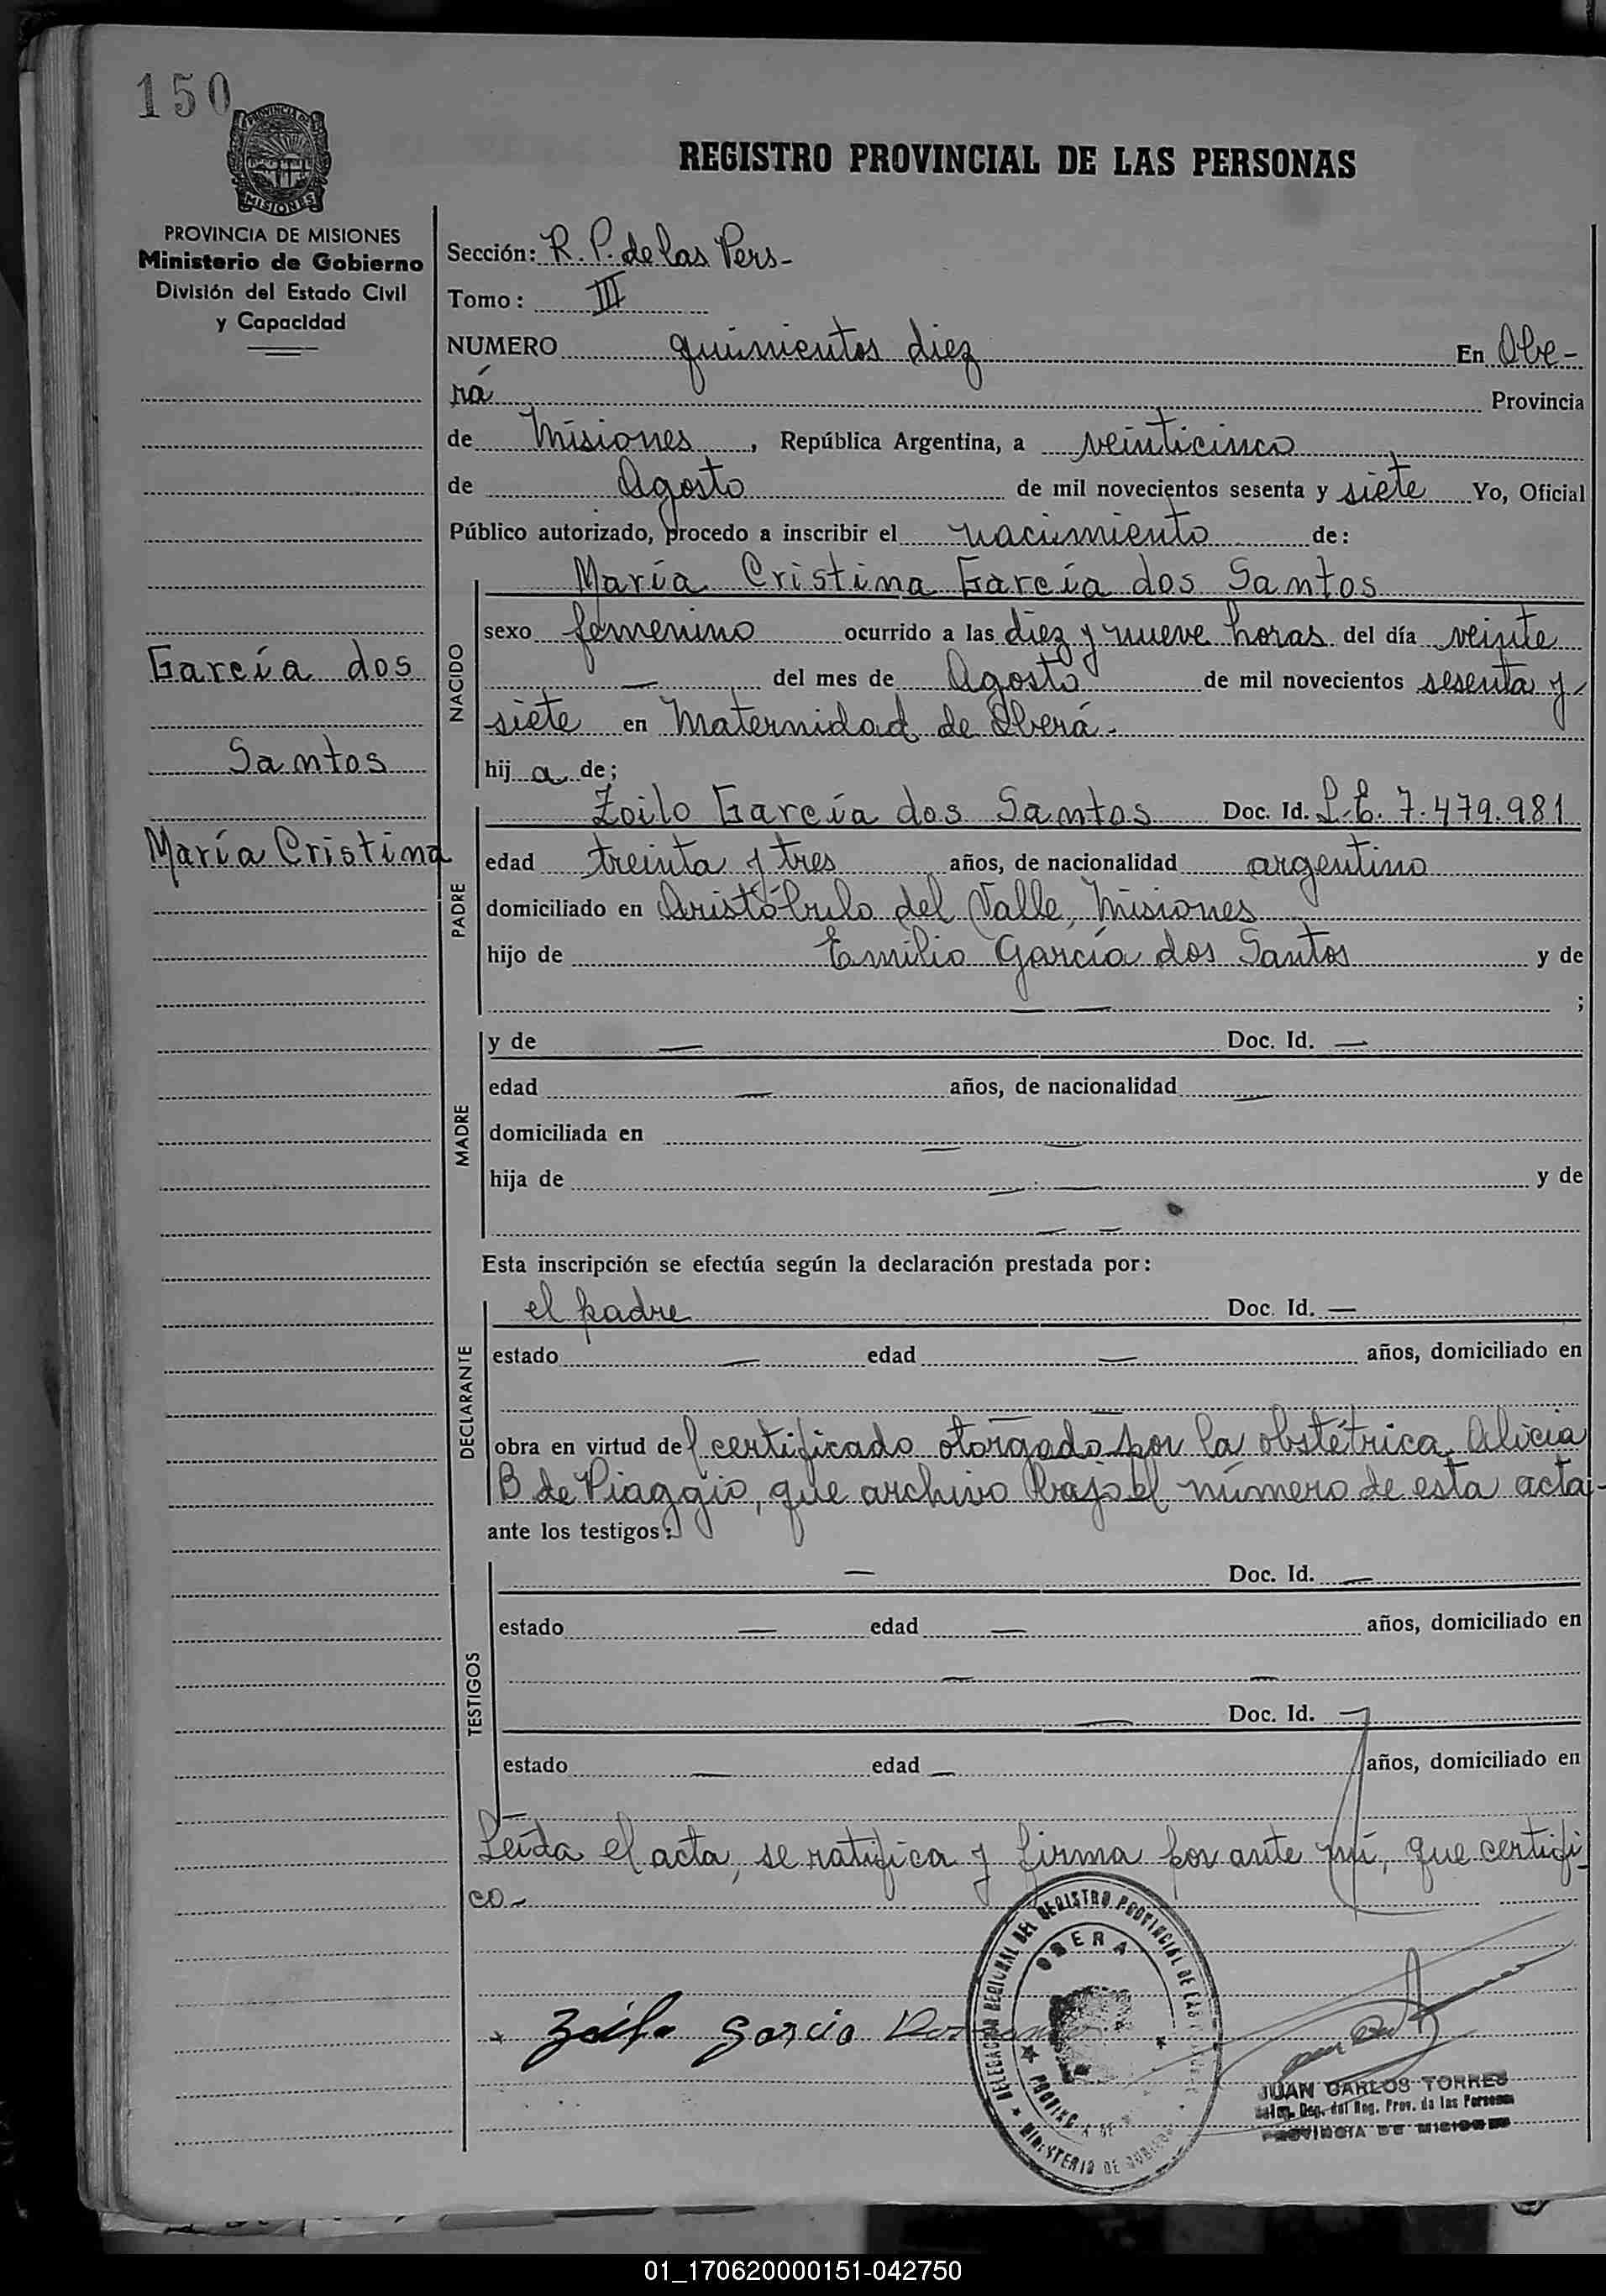 150
PROVINCIA DE
MISIONES
REGISTRO PROVINCIAL DE LAS PERSONAS
PROVINCIA DE MISIONES
Ministerio de Gobierno
División del Estado Civil
y Capacidad
García dos
Santos
María Cristina
Sección: R. P. de las Pers-
Tomo: III
NUMERO quinientos diez En Obe-
rá Provincia
de Misiones, República Argentina, a veinticinco
de Agosto de mil novecientos sesenta y siete Yo, Oficial
Público autorizado, procedo a inscribir el nacimiento de:
NACIDO
María Cristina García dos Santos
sexo femenino ocurrido a las diez y nueve horas del día veinte
— del mes de Agosto de mil novecientos sesenta y
siete en Maternidad de Oberá.-
hij a de;
PADRE
Zoilo García dos Santos Doc. Id. L.E. 7.479.981
edad treinta y tres años, de nacionalidad argentino
domiciliado en Aristóbulo del Valle, Misiones
hijo de Emilio García dos Santos y de
— — ;
MADRE
y de — Doc. Id. —
edad — años, de nacionalidad —
domiciliada en — —
hija de — — y de
— —
Esta inscripción se efectúa según la declaración prestada por:
DECLARANTE
el padre Doc. Id. —
estado — edad — años, domiciliado en
— —
obra en virtud del certificado otorgado por la obstétrica Alicia
B de Piaggio, que archivo bajo el número de esta acta.-
ante los testigos:
TESTIGOS
— Doc. Id. —
estado — edad — años, domiciliado en
— —
— Doc. Id. —
estado — edad — años, domiciliado en
Leída el acta, se ratifica y firma por ante mí, que certifi-
co-
Zoilo Garcia Dos Santos
DELEGACION REGIONAL DEL REGISTRO PROVINCIAL DE LAS
OBERA
MINISTERIO DE GOBIERNO
JUAN CARLOS TORRES
Deg. del Reg. Prov. de las Personas
PROVINCIA DE MISIONES
01_170620000151-042750